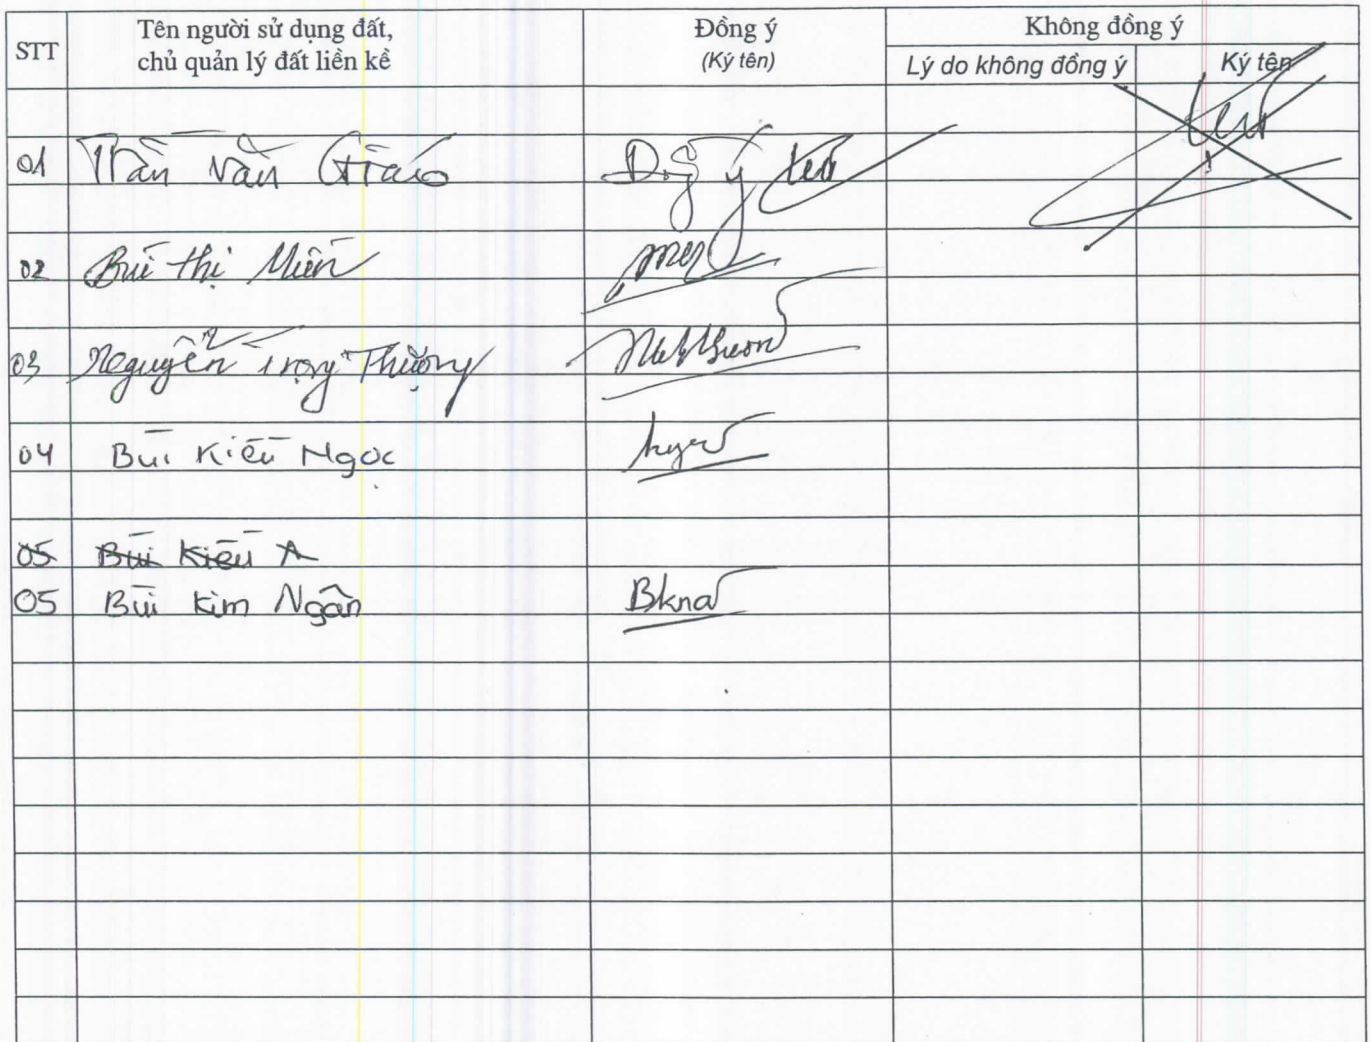 STT
Tên người sử dụng đất,
chủ quản lý đất liền kề
Đồng ý
(Ký tên)
Không đồng ý
Lý do không đồng ý
Ký tên
01 Trần Văn Giáo Đồng ý
02 Bùi Thị Miền
03 Nguyễn Trọng Thượng
04 Bùi Kiều Ngọc
05 Bùi Kiều A
05 Bùi Kim Ngân Bkna